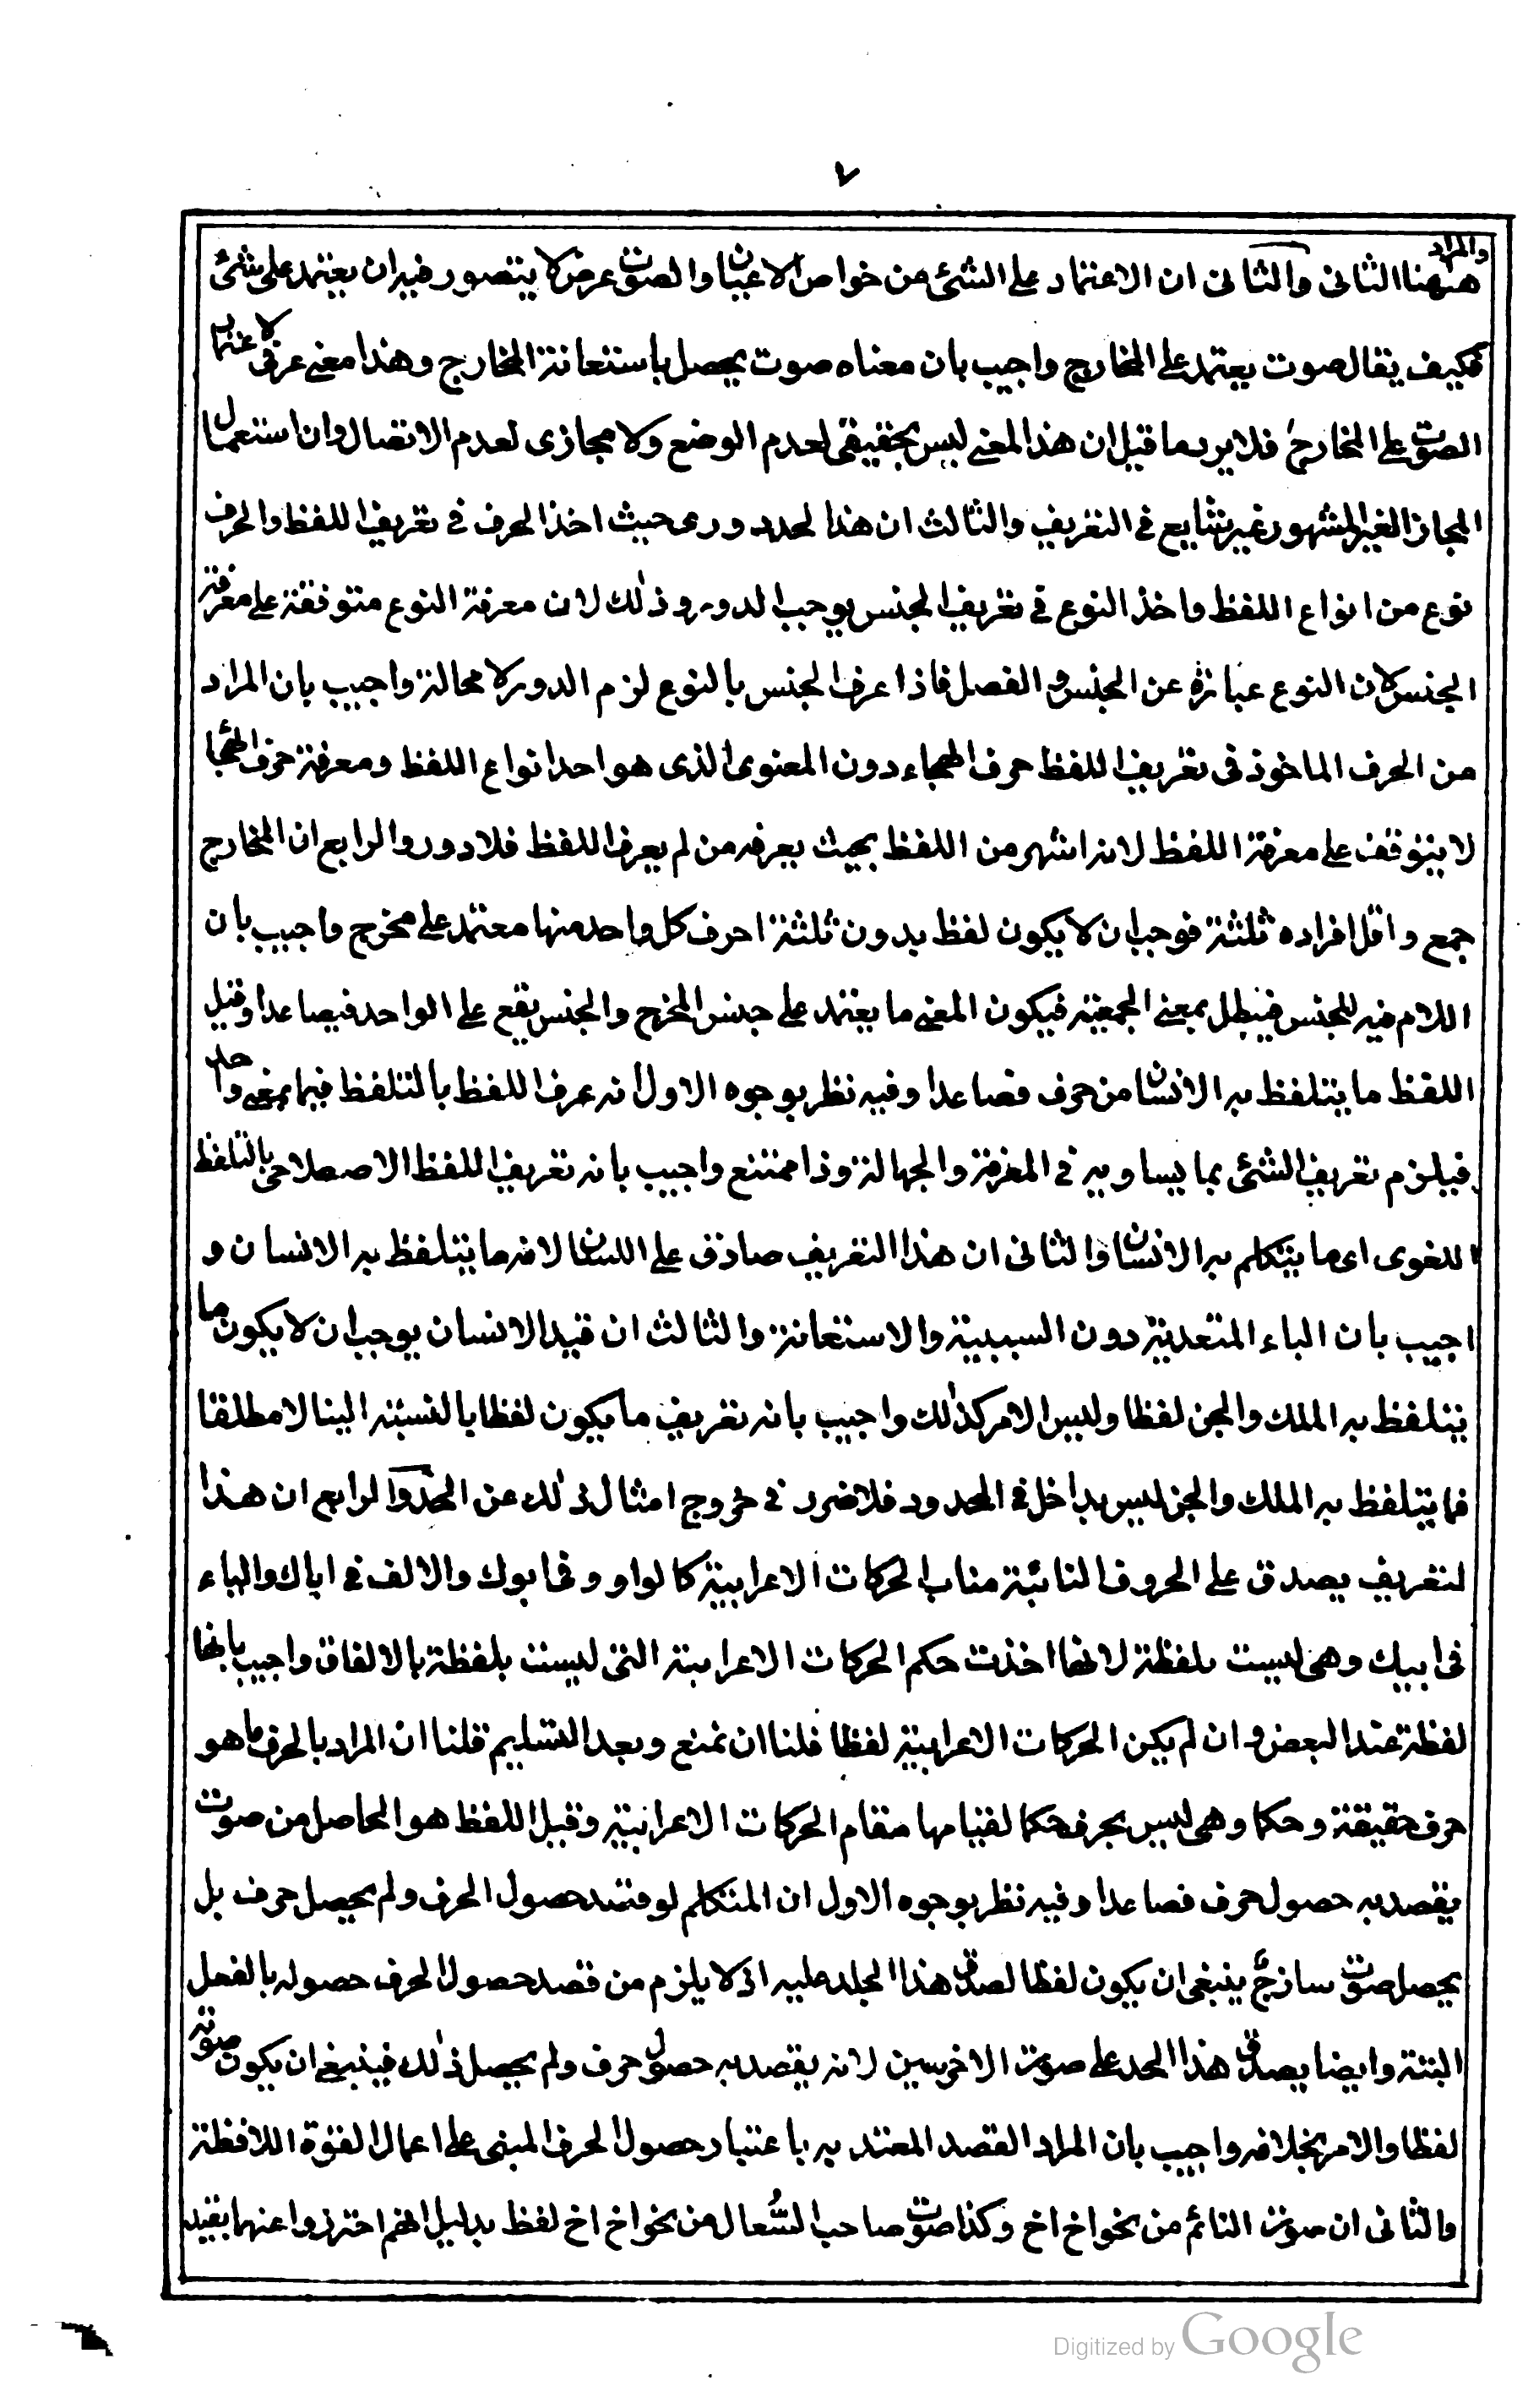 ٧
والمراد
ههنا الثانى والثانى ان الاعتماد على الشئ من خواص الاعيان والصوت عرض لا يتصور فيه ان يعتمد على شئ
فكيف يقال صوت يعتمد على المخارج واجيب بان معناه صوت يحصل باستعانة المخارج وهذا معنى عرفى لاعتماد
الصوت على المخارج فلا يرد ما قيل ان هذا المعنى ليس بحقيقى لعدم الوضع ولا مجازى لعدم الاتصال وان استعمال
المجاز الغير المشهور غير شايع فى التعريف والثالث ان هذا الحد دورى حيث اخذ الحرف فى تعريف اللفظ والحرف
نوع من انواع اللفظ واخذ النوع فى تعريف الجنس يوجب الدور وذلك لان معرفة النوع متوقفة على معرفة
الجنس لان النوع عبارة عن الجنس و الفصل فاذا عرف الجنس بالنوع لزم الدور لا محالة واجيب بان المراد
من الحرف الماخوذ فى تعريف اللفظ حرف الهجاء دون المعنوى الذى هو احد انواع اللفظ ومعرفة حرف الهجا
لا يتوقف على معرفة اللفظ لانه اشهر من اللفظ بحيث يعرفه من لم يعرف اللفظ فلا دور والرابع ان المخارج
جمع واقل افراده ثلثة فوجب ان لا يكون لفظ بدون ثلثة احرف كل واحد منها معتمد على مخرج واجيب بان
اللام فيه للجنس فيبطل بمعنى الجمعية فيكون المعنى ما يعتمد على جنس المخرج والجنس يقع على الواحد فصاعدا وقيل
اللفظ ما يتلفظ به الانسان من حرف فصاعدا وفيه نظر بوجوه الاول انه عرف اللفظ بالتلفظ فهما بمعنى واحد
فيلزم تعريف الشئ بما يساويه فى المعرفة والجهالة وذا ممتنع واجيب بانه تعريف اللفظ الاصطلاحى بالتلفظ
اللغوى اى ما يتكلم به الانسان والثانى ان هذا التعريف صادق على اللسان لانه ما يتلفظ به الانسان و
اجيب بان الباء المتعدية دون السببية والاستعانة والثالث ان قيد الانسان يوجب ان لا يكون ما
يتلفظ به الملك والجن لفظا وليس الامر كذلك واجيب بانه تعريف ما يكون لفظا بالنسبة الينا لا مطلقا
فما يتلفظ به الملك والجن ليس بداخل فى المحدود فلا ضرر فى خروج امثال ذلك عن الحد والرابع ان هذا
لتعريف يصدق على الحروف النائبة مناب الحركات الاعرابية كالواو و فى ابوك والالف فى اباك والياء
فى ابيك وهى ليست بلفظة لانها اخذت حكم الحركات الاعرابية التى ليست بلفظة بالاتفاق واجيب بانها
لفظة عند البعض وان لم يكن الحركات الاعرابية لفظا فلنا ان نمنع وبعد التسليم قلنا ان المراد بالحرف ما هو
حرف حقيقة وحكما وهى ليس بحرف حكما لقيامها مقام الحركات الاعرابية وقيل اللفظ هو الحاصل من صوت
يقصد به حصول حرف فصاعدا وفيه نظر بوجوه الاول ان المتكلم لو قصد حصول الحرف ولم يحصل حرف بل
يحصل صوت سازج ينبغى ان يكون لفظا لصدق هذا الحد عليه اذ لا يلزم من قصد حصول الحرف حصوله بالفعل
البتة وايضا يصدق هذا الحد على صوت الاخرسين لانه يقصد به حصول حرف ولم يحصل ذلك فينبغى ان يكون صوته
لفظا والامر بخلافه واجيب بان المراد القصد المعتد به باعتبار حصول الحرف المبنى على اعمال القوة اللافظة
والثانى ان صوت النائم من نحو اخ اخ وكذا صوت صاحب السعال من نحو اخ اخ لفظ بدليل انهم احترزوا عنهما بقيد
Digitized by Google